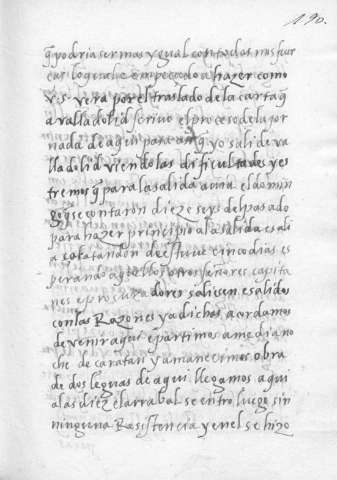 190.
q̃ podria ser mas ygual con todos nos fuer
ca lo qual e empeçado a hazer como
v. s. vera por el traslado de la carta q̃
a valladolid scrivo el proceso de la jor
nada de aqui para q̃ yo sali de va
lladolid viendo las dificultades y es
tremos q̃ para la salida avia el domin
go q̃ se contaron dieze seys del pasado
para hazer principio a la salida e sali
a çaratan donde estuve cinco dias es
perando aq̃llos otros señores capita
nes e procuradores saliesen e salidos
con las Razones ya dichas acordamos
de venir aqui e partimos a media no
che de caratan y amanecimos obra
de dos leguas de aqui llegamos aqui
a las diez el arrabal se entro luego sin
ninguna Rasistencia y en el se hizo